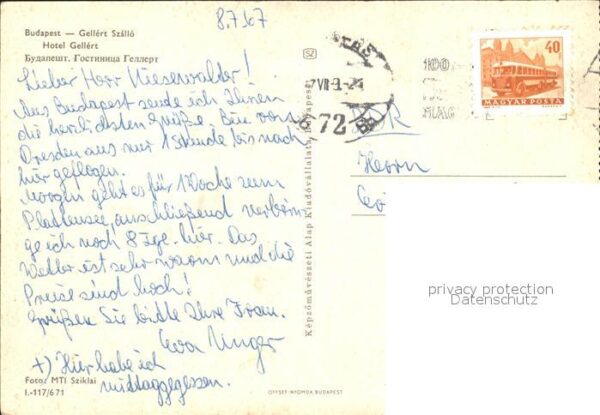 8.7.67
Budapest — Gellért Szálló
Hotel Gellért
Будапешт. Гостиница Геллерт
Lieber Herr Nieserwalder!
Aus Budapest sende ich Ihnen
die herzlichsten Grüße. Bin von
Dresden aus nur 1 Stunde bis nach
hier geflogen.
Morgen geht es für 1 Woche zum
Plattensee, anschließend verbrin-
ge ich noch 8 Tge. hier. Das
Wetter ist sehr warm und die
Preise sind hoch!
Grüßen Sie bitte Ihre Frau.
Eva Unger
+) Hier habe ich
mittaggegessen.
Foto: MTI Sziklai
I.-117/671
OFFSET-NYOMDA BUDAPEST
Képzőművészeti Alap Kiadóvállalata, Budapest
SZ
72
100
40
MAGYAR POSTA
DDR
Herrn
privacy protection
Datenschutz